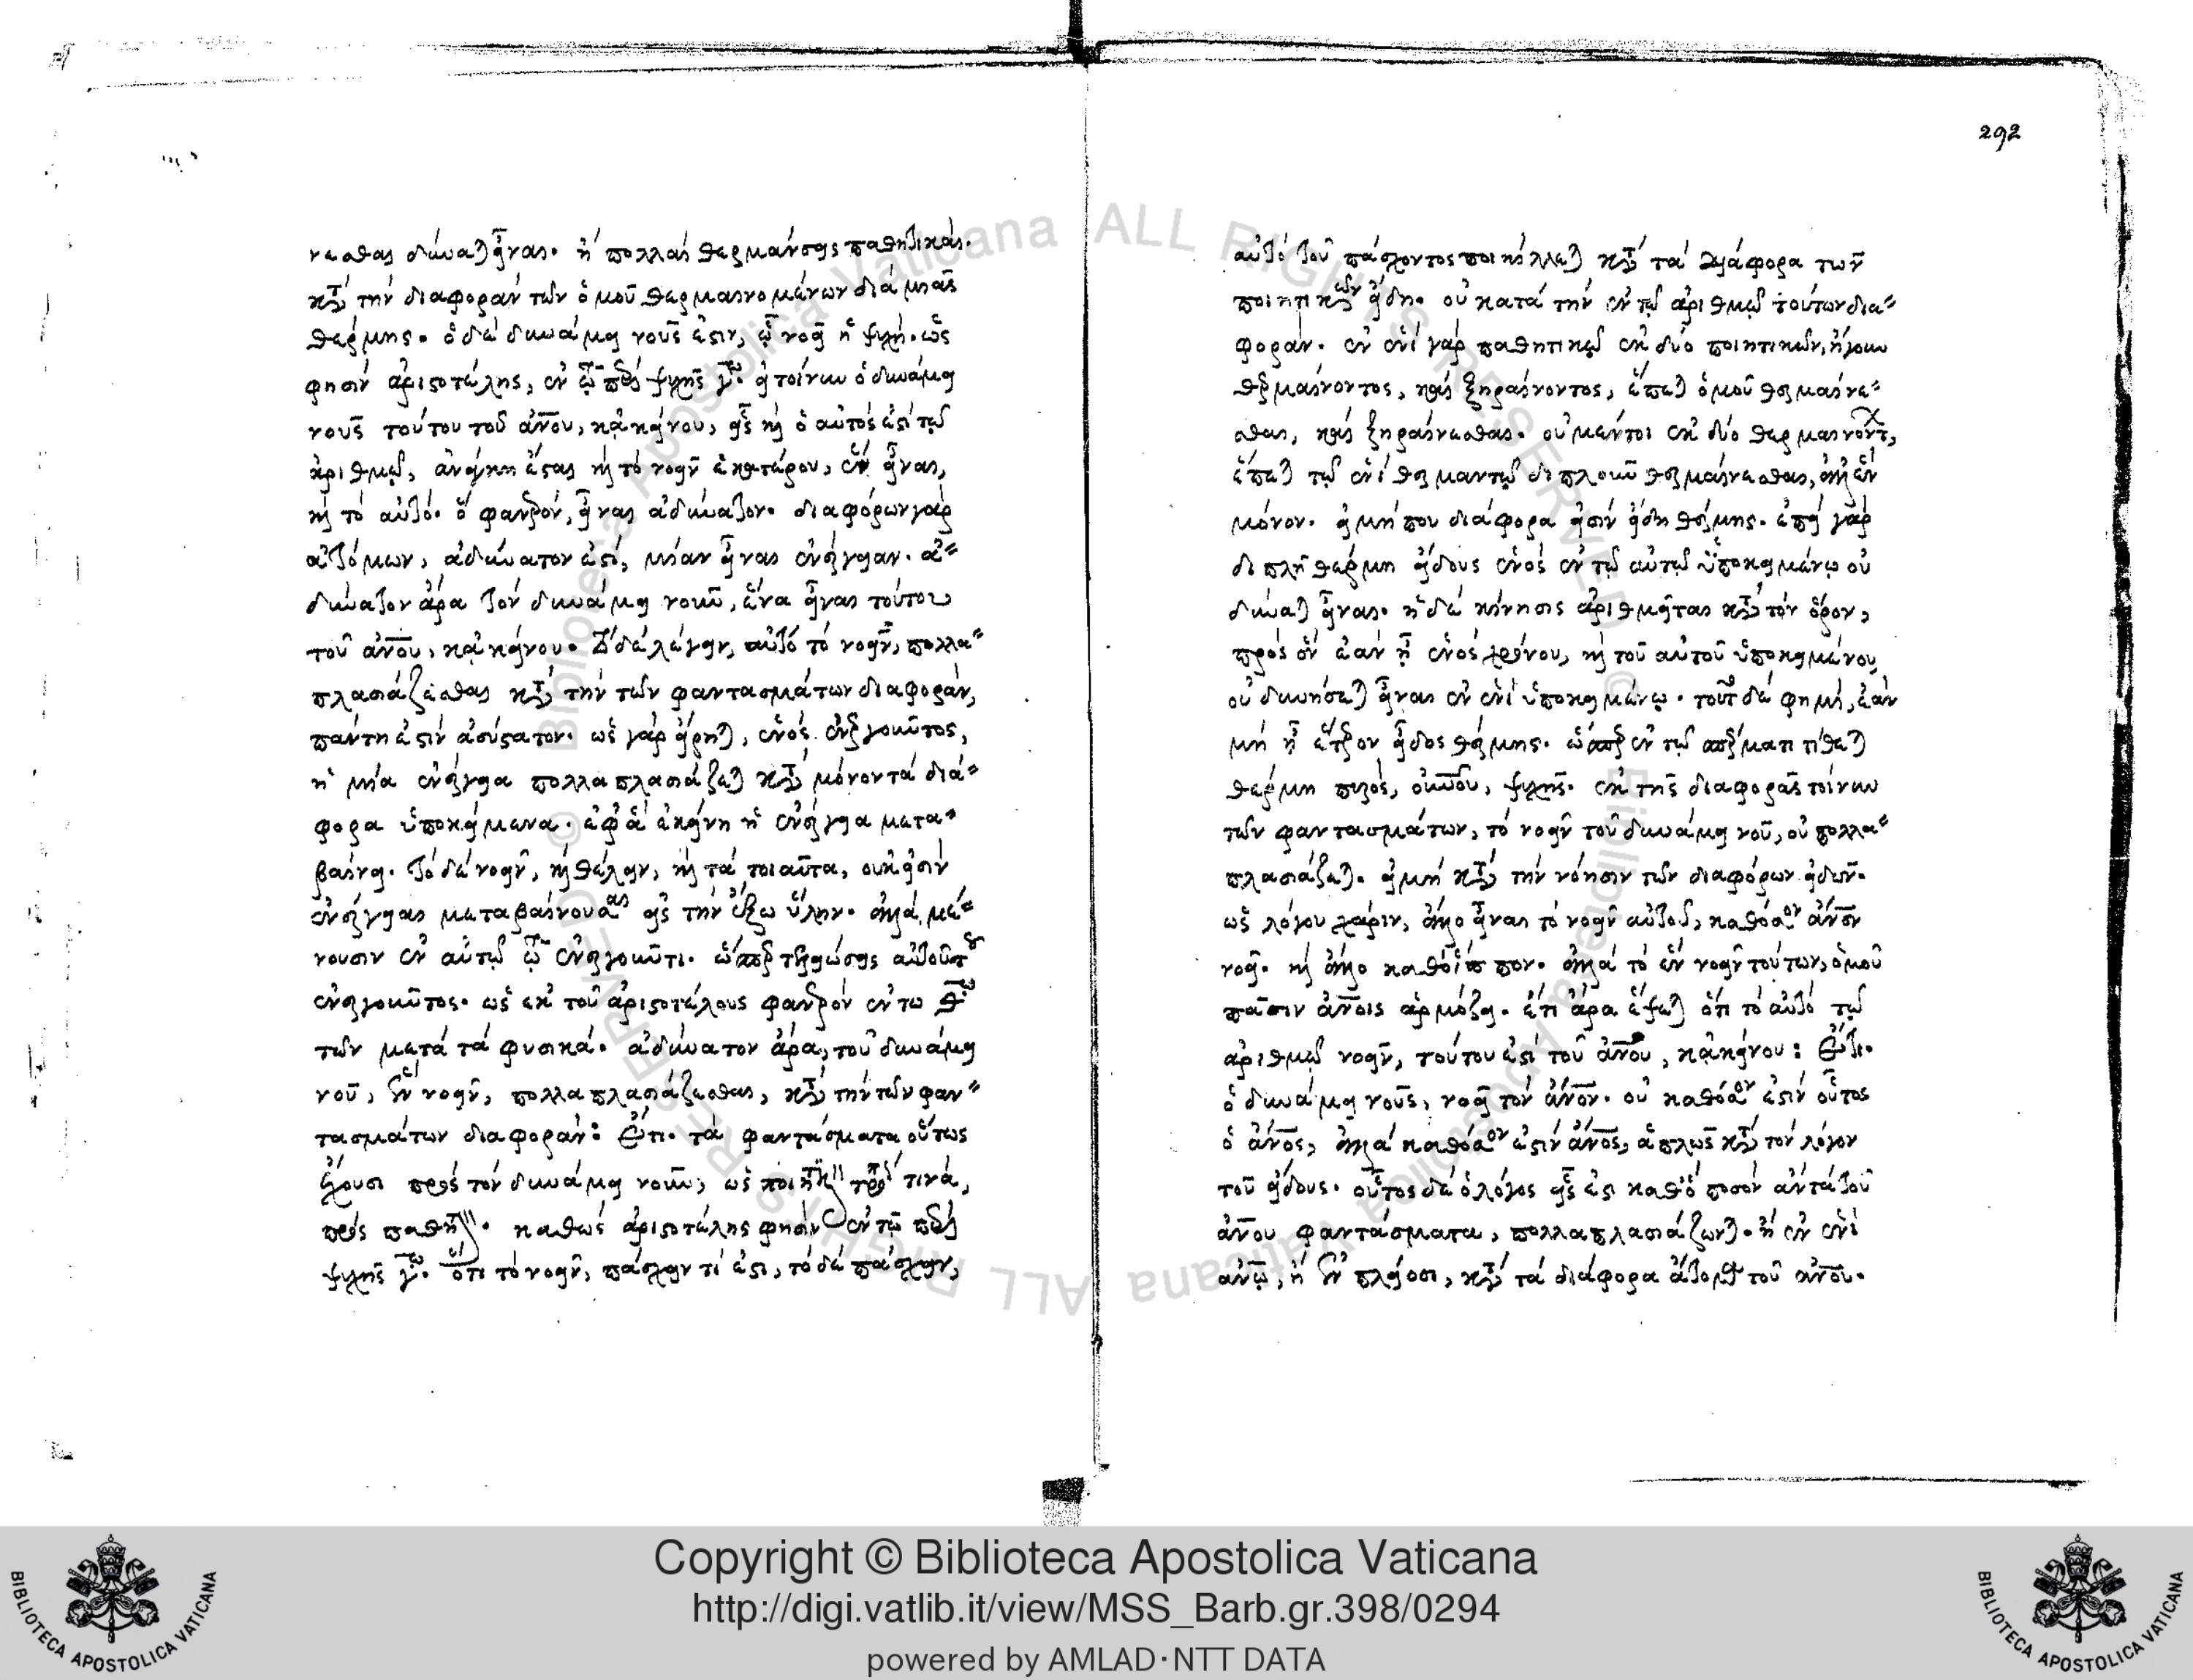 νεσθαι δύναται εἶναι. ἢ πολλαὶ θερμάνσεις παθητικαί.
κατὰ τὴν διαφορὰν τῶν ὁμοῦ θερμαινομένων διὰ μιᾶς
θέρμης. ὁ δὲ δυνάμει νοῦς ἐστιν, ᾧ νοεῖ ἡ ψυχή. ὥς
φησιν ἀριστοτέλης, ἐν τῷ περὶ ψυχῆς γῳ. εἰ τοίνυν ὁ δυνάμει
νοῦς τούτου τοῦ ἀνου, κἀκείνου, εἷς καὶ ὁ αὐτός ἐστι τῷ
ἀριθμῷ, ἀνάγκη ἔσται καὶ τὸ νοεῖν ἑκατέρου, ἓν εἶναι,
καὶ τὸ αὐτό. ὃ φανερόν, εἶναι ἀδύνατον. διαφόρων γὰρ
ἀτόμων, ἀδύνατόν ἐστι, μίαν εἶναι ἐνέργειαν. ἀ-
δύνατον ἄρα τὸν δυνάμει νοῦν, ἕνα εἶναι τούτου
τοῦ ἀνου, κἀκείνου. Τὸ δὲ λέγειν, αὐτὸ τὸ νοεῖν, πολλα-
πλασιάζεσθαι κατὰ τὴν τῶν φαντασμάτων διαφοράν,
πάντη ἐστὶν ἀσύστατον. ὡς γὰρ εἴρηται, ἑνὸς ἐνεργοῦντος,
ἡ μία ἐνέργεια πολλαπλασιάζεται κατὰ μόνον τὰ διά-
φορα ὑποκείμενα. ἐφ' ἃ ἐκείνη ἡ ἐνέργεια μετα-
βαίνει. Τὸ δὲ νοεῖν, καὶ θέλειν, καὶ τὰ τοιαῦτα, οὐκ εἰσὶν
ἐνέργειαι μεταβαίνουσαι εἰς τὴν ἔξω ὕλην. ἀλλὰ μέ-
νουσιν ἐν αὐτῷ τῷ ἐνεργοῦντι. ὥσπερ τελειώσεις αὐτοῦ τοῦ
ἐνεργοῦντος. ὡς ἐκ τοῦ ἀριστοτέλους φανερὸν ἐν τῷ θῳ
τῶν μετὰ τὰ φυσικά. ἀδύνατον ἄρα, τοῦ δυνάμει
νοῦ, ἓν νοεῖν, πολλαπλασιάζεσθαι, κατὰ τὴν τῶν φαν-
τασμάτων διαφοράν: Ἔτι. τὰ φαντάσματα οὕτως
ἔχουσι πρὸς τὸν δυνάμει νοῦν, ὡς ποιητικὰ τινά,
πρὸς παθητικ. καθὼς ἀριστοτέλης φησὶν ἐν τῷ περὶ
ψυχῆς γῳ. ὅτι τὸ νοεῖν, πάσχειν τί ἐστι, τὸ δὲ πάσχειν,
292
αὐτὸ τοῦ πάσχοντος ποικίλλεται κατὰ τὰ διάφορα τῶν
ποιητικῶν εἴδη. οὐ κατὰ τὴν ἐν τῷ ἀριθμῷ τούτων δια-
φοράν. ἐν ἑνὶ γὰρ παθητικῷ ἐκ δύο ποιητικῶν, ἤγουν
θερμαίνοντος, καὶ ξηραίνοντος, ἕπεται ὁμοῦ θερμαίνε-
σθαι, καὶ ξηραίνεσθαι. οὐ μέντοι ἐκ δύο θερμαινόντων,
ἕπεται τῷ ἑνὶ θερμαντῷ διπλοῦν θερμαίνεσθαι, ἀλλ' ἓν
μόνον. εἰ μήπου διάφορα εἰσὶν εἴδη θέρμης. ἐπεὶ γὰρ
διπλῆ θέρμη εἴδους ἑνὸς ἐν τῷ αὐτῷ ὑποκειμένῳ οὐ
δύναται εἶναι. ἡ δὲ κίνησις ἀριθμεῖται κατὰ τὸν ὅρον,
πρὸς ὃν ἐὰν ᾖ ἑνὸς χρόνου, καὶ τοῦ αὐτοῦ ὑποκειμένου,
οὐ δυνήσεται εἶναι ἐν ἑνὶ ὑποκειμένῳ. τοῦτο δέ φημι, ἐὰν
μὴ ᾖ ἕτερον εἶδος θέρμης. ὥσπερ ἐν τῷ σπέρματι τίθεται
θέρμη πυρός, οὐνοῦ, ψυχῆς. ἐκ τῆς διαφορᾶς τοίνυν
τῶν φαντασμάτων, τὸ νοεῖν τοῦ δυνάμει νοῦ, οὐ πολλα-
πλασιάζεται. εἰ μὴ κατὰ τὴν νόησιν τῶν διαφόρων εἰδῶν.
ὡς λόγου χάριν, ἄλλο εἶναι τὸ νοεῖν αὐτοῦ, καθόσον ἄνον
νοεῖ. καὶ ἄλλο καθὸ ἵππον. ἀλλὰ τὸ ἓν νοεῖν τούτων, ὁμοῦ
πᾶσιν ἀνοις ἁρμόζει. ἔτι ἄρα ἕψεται ὅτι τὸ αὐτὸ τῷ
ἀριθμῷ νοεῖν, τούτου ἐστὶ τοῦ ἀνου, κἀκείνου: Ἔτι.
ὁ δυνάμει νοῦς, νοεῖ τὸν ἄνον. οὐ καθόσον ἐστὶν οὗτος
ὁ ἄνος, ἀλλὰ καθόσον ἐστὶν ἄνος, ἁπλῶς κατὰ τὸν λόγον
τοῦ εἴδους. οὗτος δὲ ὁ λόγος εἷς ἐστι καθ' ὁπόσον ἂν τὰ τοῦ
ἀνου φαντάσματα, πολλαπλασιάζωνται. ἢ ἐν ἑνὶ
ἀνῳ, ἢ ἐν πλείοσι, κατὰ τὰ διάφορα ἄτομα τοῦ ἀνου.
Copyright © Biblioteca Apostolica Vaticana
http://digi.vatlib.it/view/MSS_Barb.gr.398/0294
powered by AMLAD·NTT DATA
BIBLIOTECA APOSTOLICA VATICANA
BIBLIOTECA APOSTOLICA VATICANA